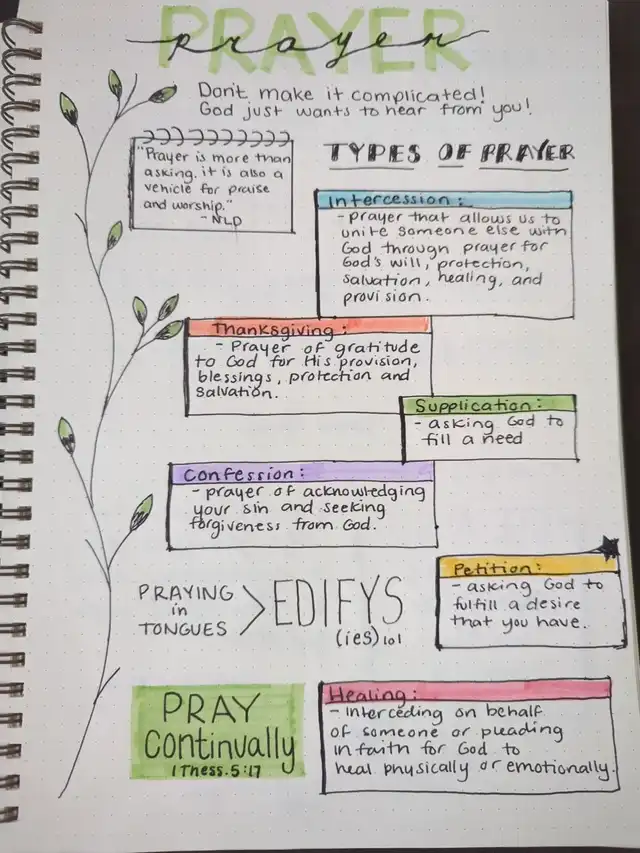 PRAYER
prayer
Don't make it complicated!
God just wants to hear from you!
"Prayer is more than
asking. it is also a
vehicle for praise
and worship."
- NLD
TYPES OF PRAYER
Intercession:
- prayer that allows us to
unite someone else with
God through prayer for
God's will, protection,
salvation, healing, and
provision.
Thanksgiving:
- Prayer of gratitude
to God for His provision,
blessings, protection and
salvation.
Supplication:
- asking God to
fill a need
Confession:
- prayer of acknowledging
your sin and seeking
forgiveness from God.
Petition:
- asking God to
fulfill a desire
that you have.
PRAYING
in
TONGUES
> EDIFYS
(ies) lol
PRAY
Continually
1 Thess. 5:17
Healing:
- Interceding on behalf
of someone or pleading
in faith for God to
heal physically or emotionally.